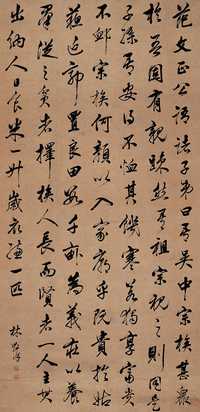 范文正公語諸子弟曰吾吳中宗族甚眾
於吾固有親疎然吾祖宗視之則同是
子孫吾安得不恤其饑寒若獨享富貴
不卹宗族何顏以入家廟乎既貴於姑
蘇近郭置良田數千畝為義莊以養
群從之貧者擇族人長而賢者一人主其
出納人日食米一升歲衣縑一匹
林